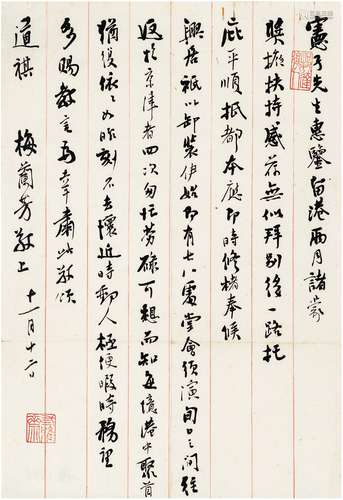 憲子先生惠鑒留港兩月諸蒙
獎掖扶持感荷無似拜別後一路托
庇平順抵都本應即時修楮奉候
興居祇以卸裝伊始即有七八處堂會須演旬日之間往
返於京津者四次匆忙勞碌可想而知每憶港中聚首
猶復依依如昨刻不去懷近時郵人極便暇時務望
多賜教言為幸肅此敬頌
道祺 梅蘭芳敬上 十一月十二日